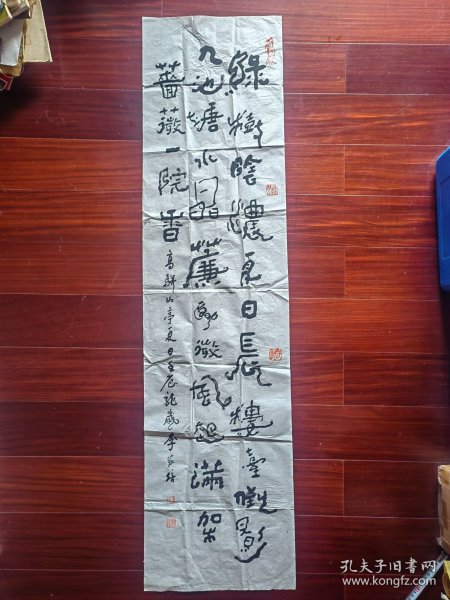 綠樹陰濃夏日長樓臺倒影
入池塘水晶簾動微風起滿架
薔薇一院香 高駢山亭夏日
孔夫子旧书网
www.kongfz.com